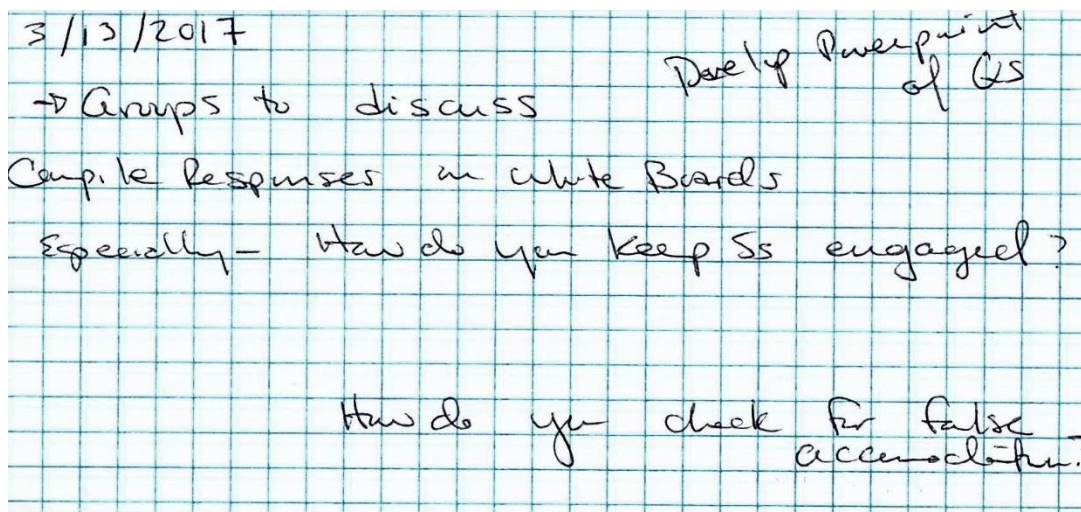 3/13/2017
Develp Powerpoint
of QS
→ Groups to discuss
Compile Responses on white Boards
Especially – How do you keep Ss engaged?
How do you check for false
accomodation.